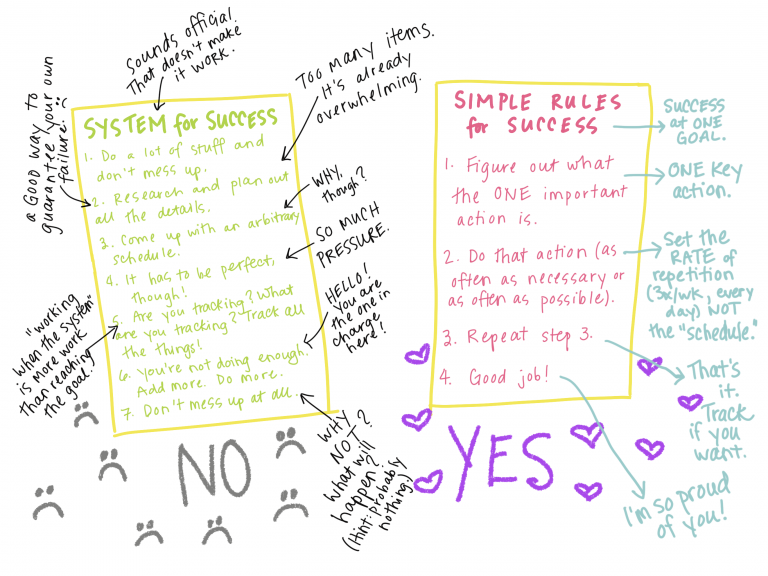 Sounds official.
That doesn't make
it WORK.
Too many items.
It's already
overwhelming.
a GOOD way to
guarantee your own
failure. :(
SYSTEM for SUCCESS
1. Do a lot of stuff and
don't mess up.
2. Research and plan out
all the details.
3. Come up with an arbitrary
schedule.
4. It has to be perfect,
though!
5. Are you tracking? What
are you tracking? Track all
the things!
6. You're not doing enough.
Add more. Do more.
7. Don't mess up at all.
WHY,
though?
SO MUCH
PRESSURE.
HELLO!
You are
the one in
charge
here!
"working
when the system"
is more work
than reaching
the goal.
WHY
NOT?
What will
happen?
(Hint: Probably
nothing)
NO
SIMPLE RULES
for SUCCESS
1. Figure out what
the ONE important
action is.
2. Do that action (as
often as necessary or
as often as possible).
3. Repeat step 3.
4. Good job!
SUCCESS
at ONE
GOAL.
ONE Key
action.
Set the
RATE of
repetition
(3x/wk, every
day) NOT
the "schedule."
That's
it.
Track
if you
want.
I'm so proud
of you!
YES